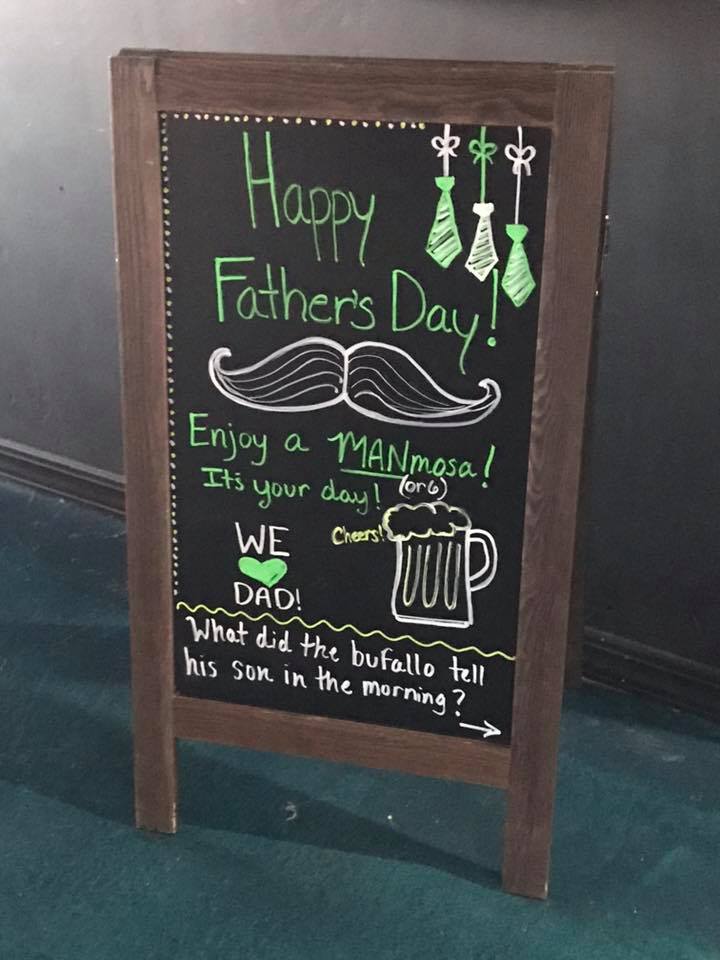 Happy
Father's Day!
Enjoy a MANmosa!
It's your day! (or 6)
Cheers!
WE
DAD!
What did the bufallo tell
his son in the morning?